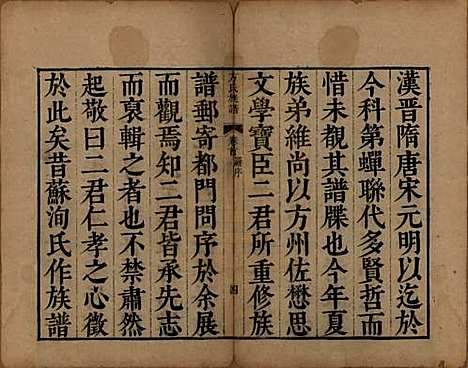 漢晉隋唐宋元明以迄於
今科第蟬聯代多賢哲而
惜未覩其譜牒也今年夏
族弟維尚以方州佐懋思
文學寶臣二君所重修族
方氏族譜
卷首
序
四
譜郵寄都門問序於余展
而觀焉知二君皆承先志
而裒輯之者也不禁肅然
起敬曰二君仁孝之心徵
於此矣昔蘇洵氏作族譜